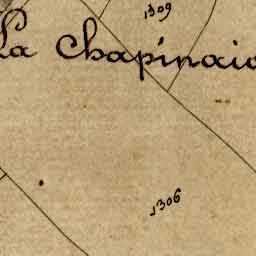 1309
La Chapinaio
1306